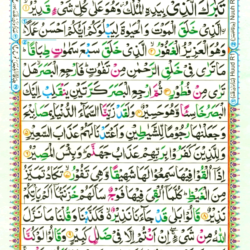 تَبٰرَكَ الَّذِيْ بِيَدِهِ الْمُلْكُ وَهُوَ عَلٰى كُلِّ شَيْءٍ قَدِيْرُۙ
الَّذِيْ خَلَقَ الْمَوْتَ وَالْحَيٰوةَ لِيَبْلُوَكُمْ اَيُّكُمْ اَحْسَنُ عَمَلًاؕ
وَهُوَ الْعَزِيْزُ الْغَفُوْرُۙ الَّذِيْ خَلَقَ سَبْعَ سَمٰوٰتٍ طِبَاقًاؕ
مَا تَرٰى فِيْ خَلْقِ الرَّحْمٰنِ مِنْ تَفٰوُتٍؕ فَارْجِعِ الْبَصَرَۙ هَلْ
تَرٰى مِنْ فُطُوْرٍ ثُمَّ ارْجِعِ الْبَصَرَ كَرَّتَيْنِ يَنْقَلِبْ اِلَيْكَ
الْبَصَرُ خَاسِئًا وَّهُوَ حَسِيْرٌ وَلَقَدْ زَيَّنَّا السَّمَآءَ الدُّنْيَا بِمَصَابِيْحَ
وَجَعَلْنٰهَا رُجُوْمًا لِّلشَّيٰطِيْنِ وَاَعْتَدْنَا لَهُمْ عَذَابَ السَّعِيْرِ
وَلِلَّذِيْنَ كَفَرُوْا بِرَبِّهِمْ عَذَابُ جَهَنَّمَؕ وَبِئْسَ الْمَصِيْرُ
اِذَآ اُلْقُوْا فِيْهَا سَمِعُوْا لَهَا شَهِيْقًا وَّهِيَ تَفُوْرُۙ تَكَادُ تَمَيَّزُ
مِنَ الْغَيْظِؕ كُلَّمَآ اُلْقِيَ فِيْهَا فَوْجٌ سَاَلَهُمْ خَزَنَتُهَآ اَلَمْ يَاْتِكُمْ
نَذِيْرٌ قَالُوْا بَلٰى قَدْ جَآءَنَا نَذِيْرٌ فَكَذَّبْنَا وَقُلْنَا مَا نَزَّلَ
اللّٰهُ مِنْ شَيْءٍ اِنْ اَنْتُمْ اِلَّا فِيْ ضَلٰلٍ كَبِيْرٍ